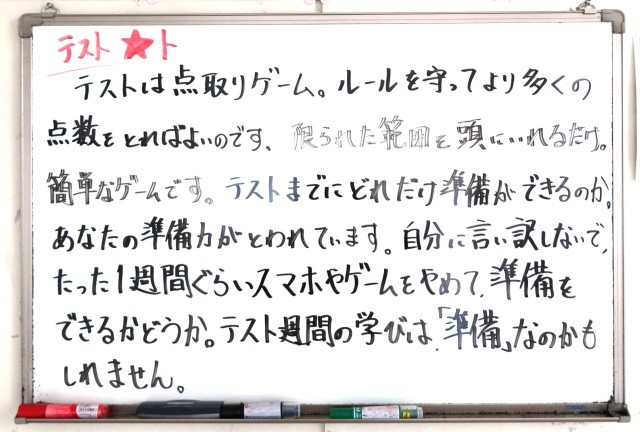 テスト★ト
テストは点取りゲーム。ルールを守ってより多くの
点数をとればよいのです、限られた範囲を頭にいれるだけ。
簡単なゲームです。テストまでにどれだけ準備ができるのか。
あなたの準備力がとわれています。自分に言い訳しないで、
たった1週間ぐらいスマホやゲームをやめて、準備を
できるかどうか。テスト週間の学びは、「準備」なのかも
しれません。